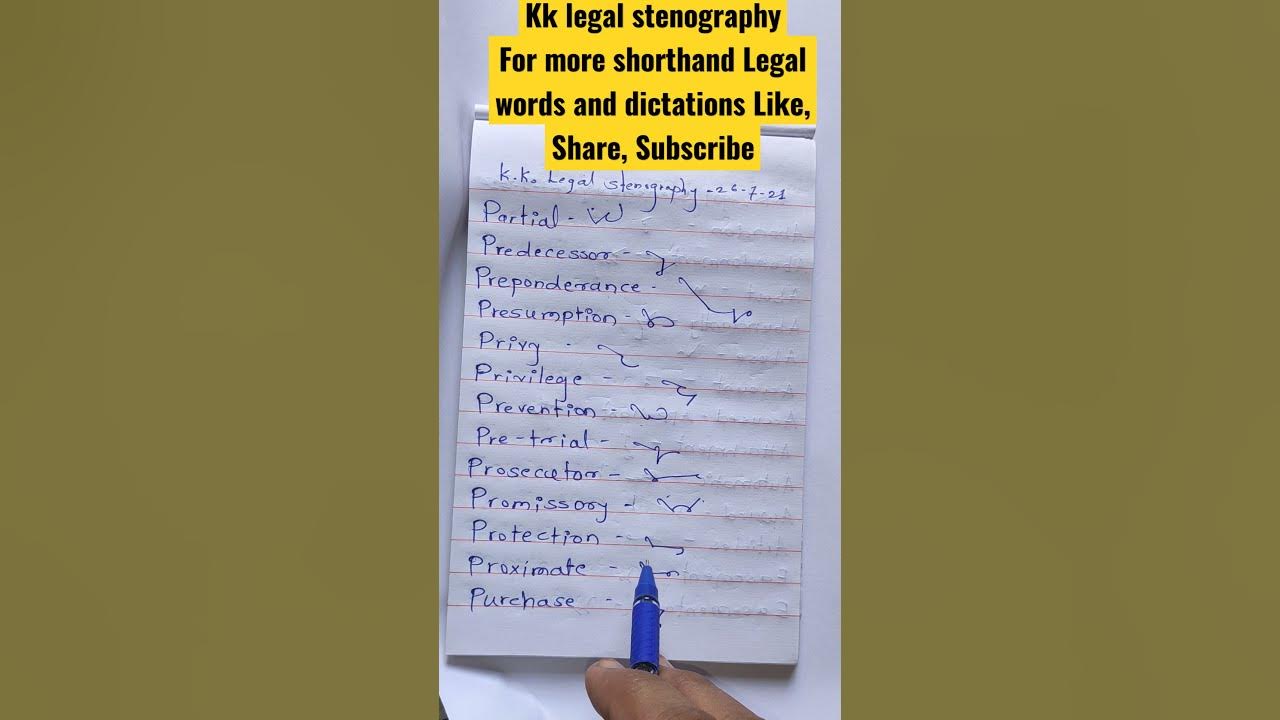 Kk legal stenography
For more shorthand Legal
words and dictations Like,
Share, Subscribe
K.K. Legal stenography - 26-7-21
Partial -
Predecessor -
Preponderance -
Presumption -
Privy -
Privilege -
Prevention -
Pre-trial -
Prosecutor -
Promissory -
Protection -
Proximate -
Purchase -